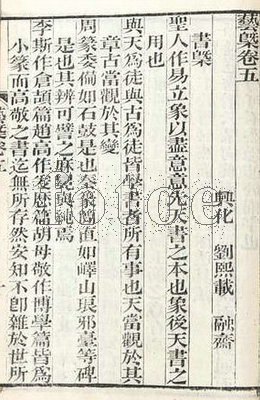 藝㮣卷五
興化 劉熙載 融齋
書㮣
聖人作易立象以盡意意先天書之本也象後天書之
用也
與天為徒與古為徒皆學書者所有事也天當觀於其
章古當觀於其變
周篆委備如石鼓是也秦篆簡直如嶧山琅邪臺等碑
是也其辨可譬之麻冕與純焉
李斯作倉頡篇趙高作爰歷篇胡母敬作博學篇皆為
小篆而高敬之書迄無所存然安知不卽雜於世所